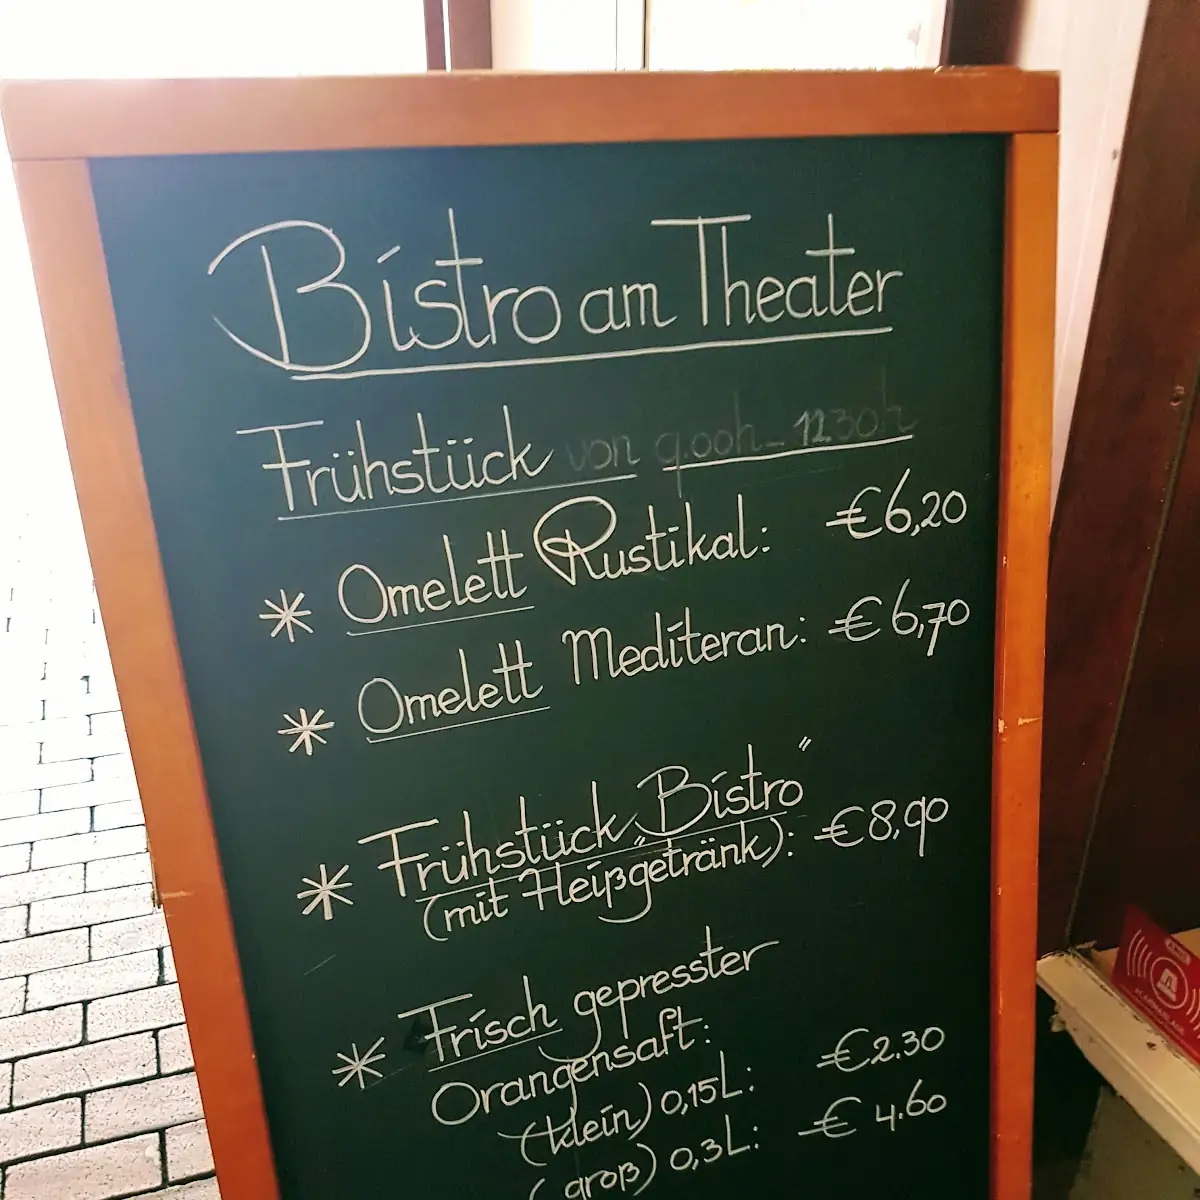 Bistro am Theater
Frühstück von 9.00h - 12.30h
* Omelett Rustikal: €6,20
* Omelett Mediteran: €6,70
* Frühstück „Bistro"
(mit Heißgetränk): €8,90
* Frisch gepresster
Orangensaft:
(klein) 0,15L: €2.30
(groß) 0,3L: €4.60